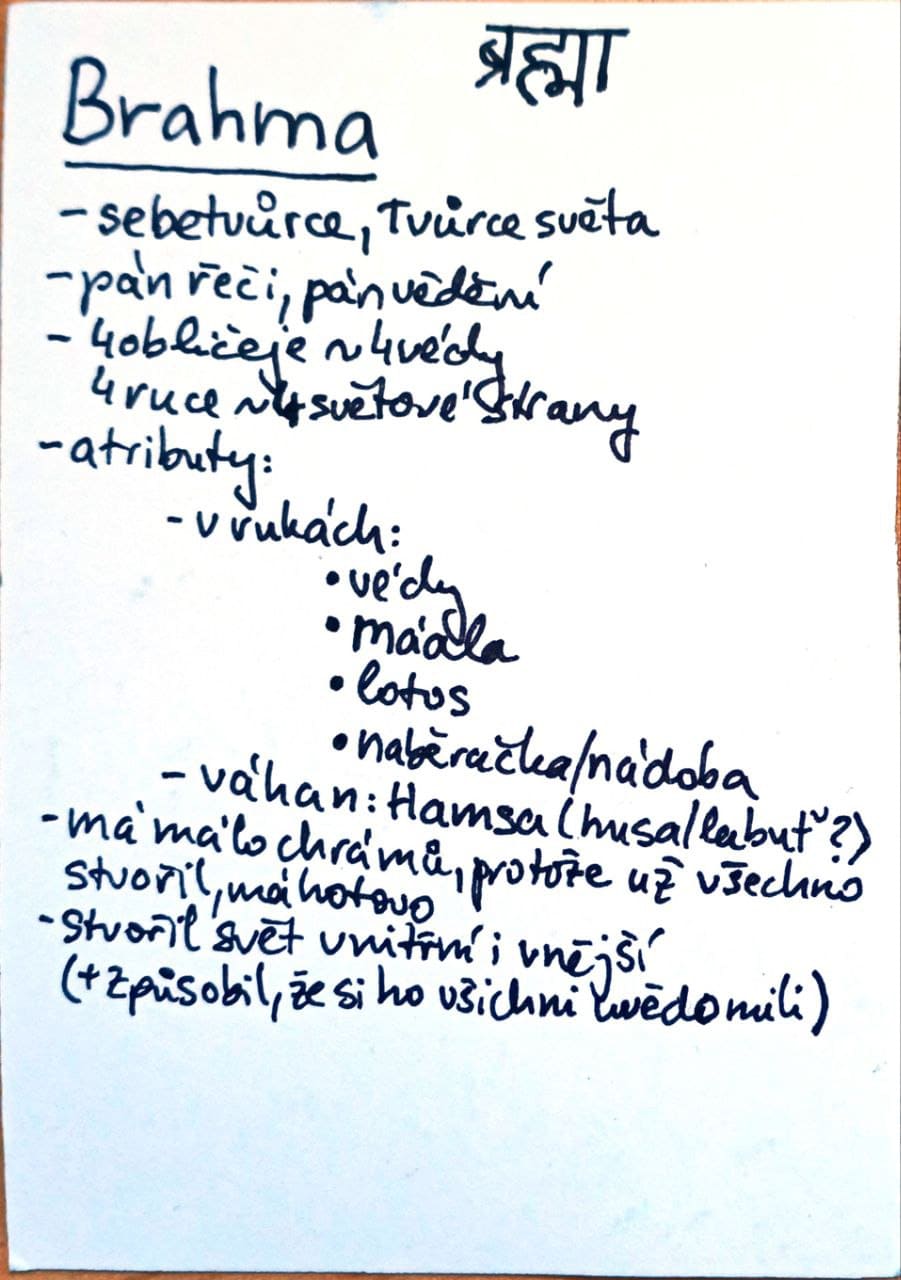 ब्रह्मा
Brahma
- sebetvůrce, Tvůrce světa
- pán řeči, pán vědění
- 4 obličeje ~ 4 védy
4 ruce ~ 4 světové strany
- atributy:
- v rukách:
• védy
• máala
• lotos
• naběračka/nádoba
- váhan: Hamsa (husa/labuť?)
- má málo chrámů, protože už všechno
stvořil, má hotovo
- stvořil svět vnitřní i vnější
(+ způsobil, že si ho všichni uvědomili)